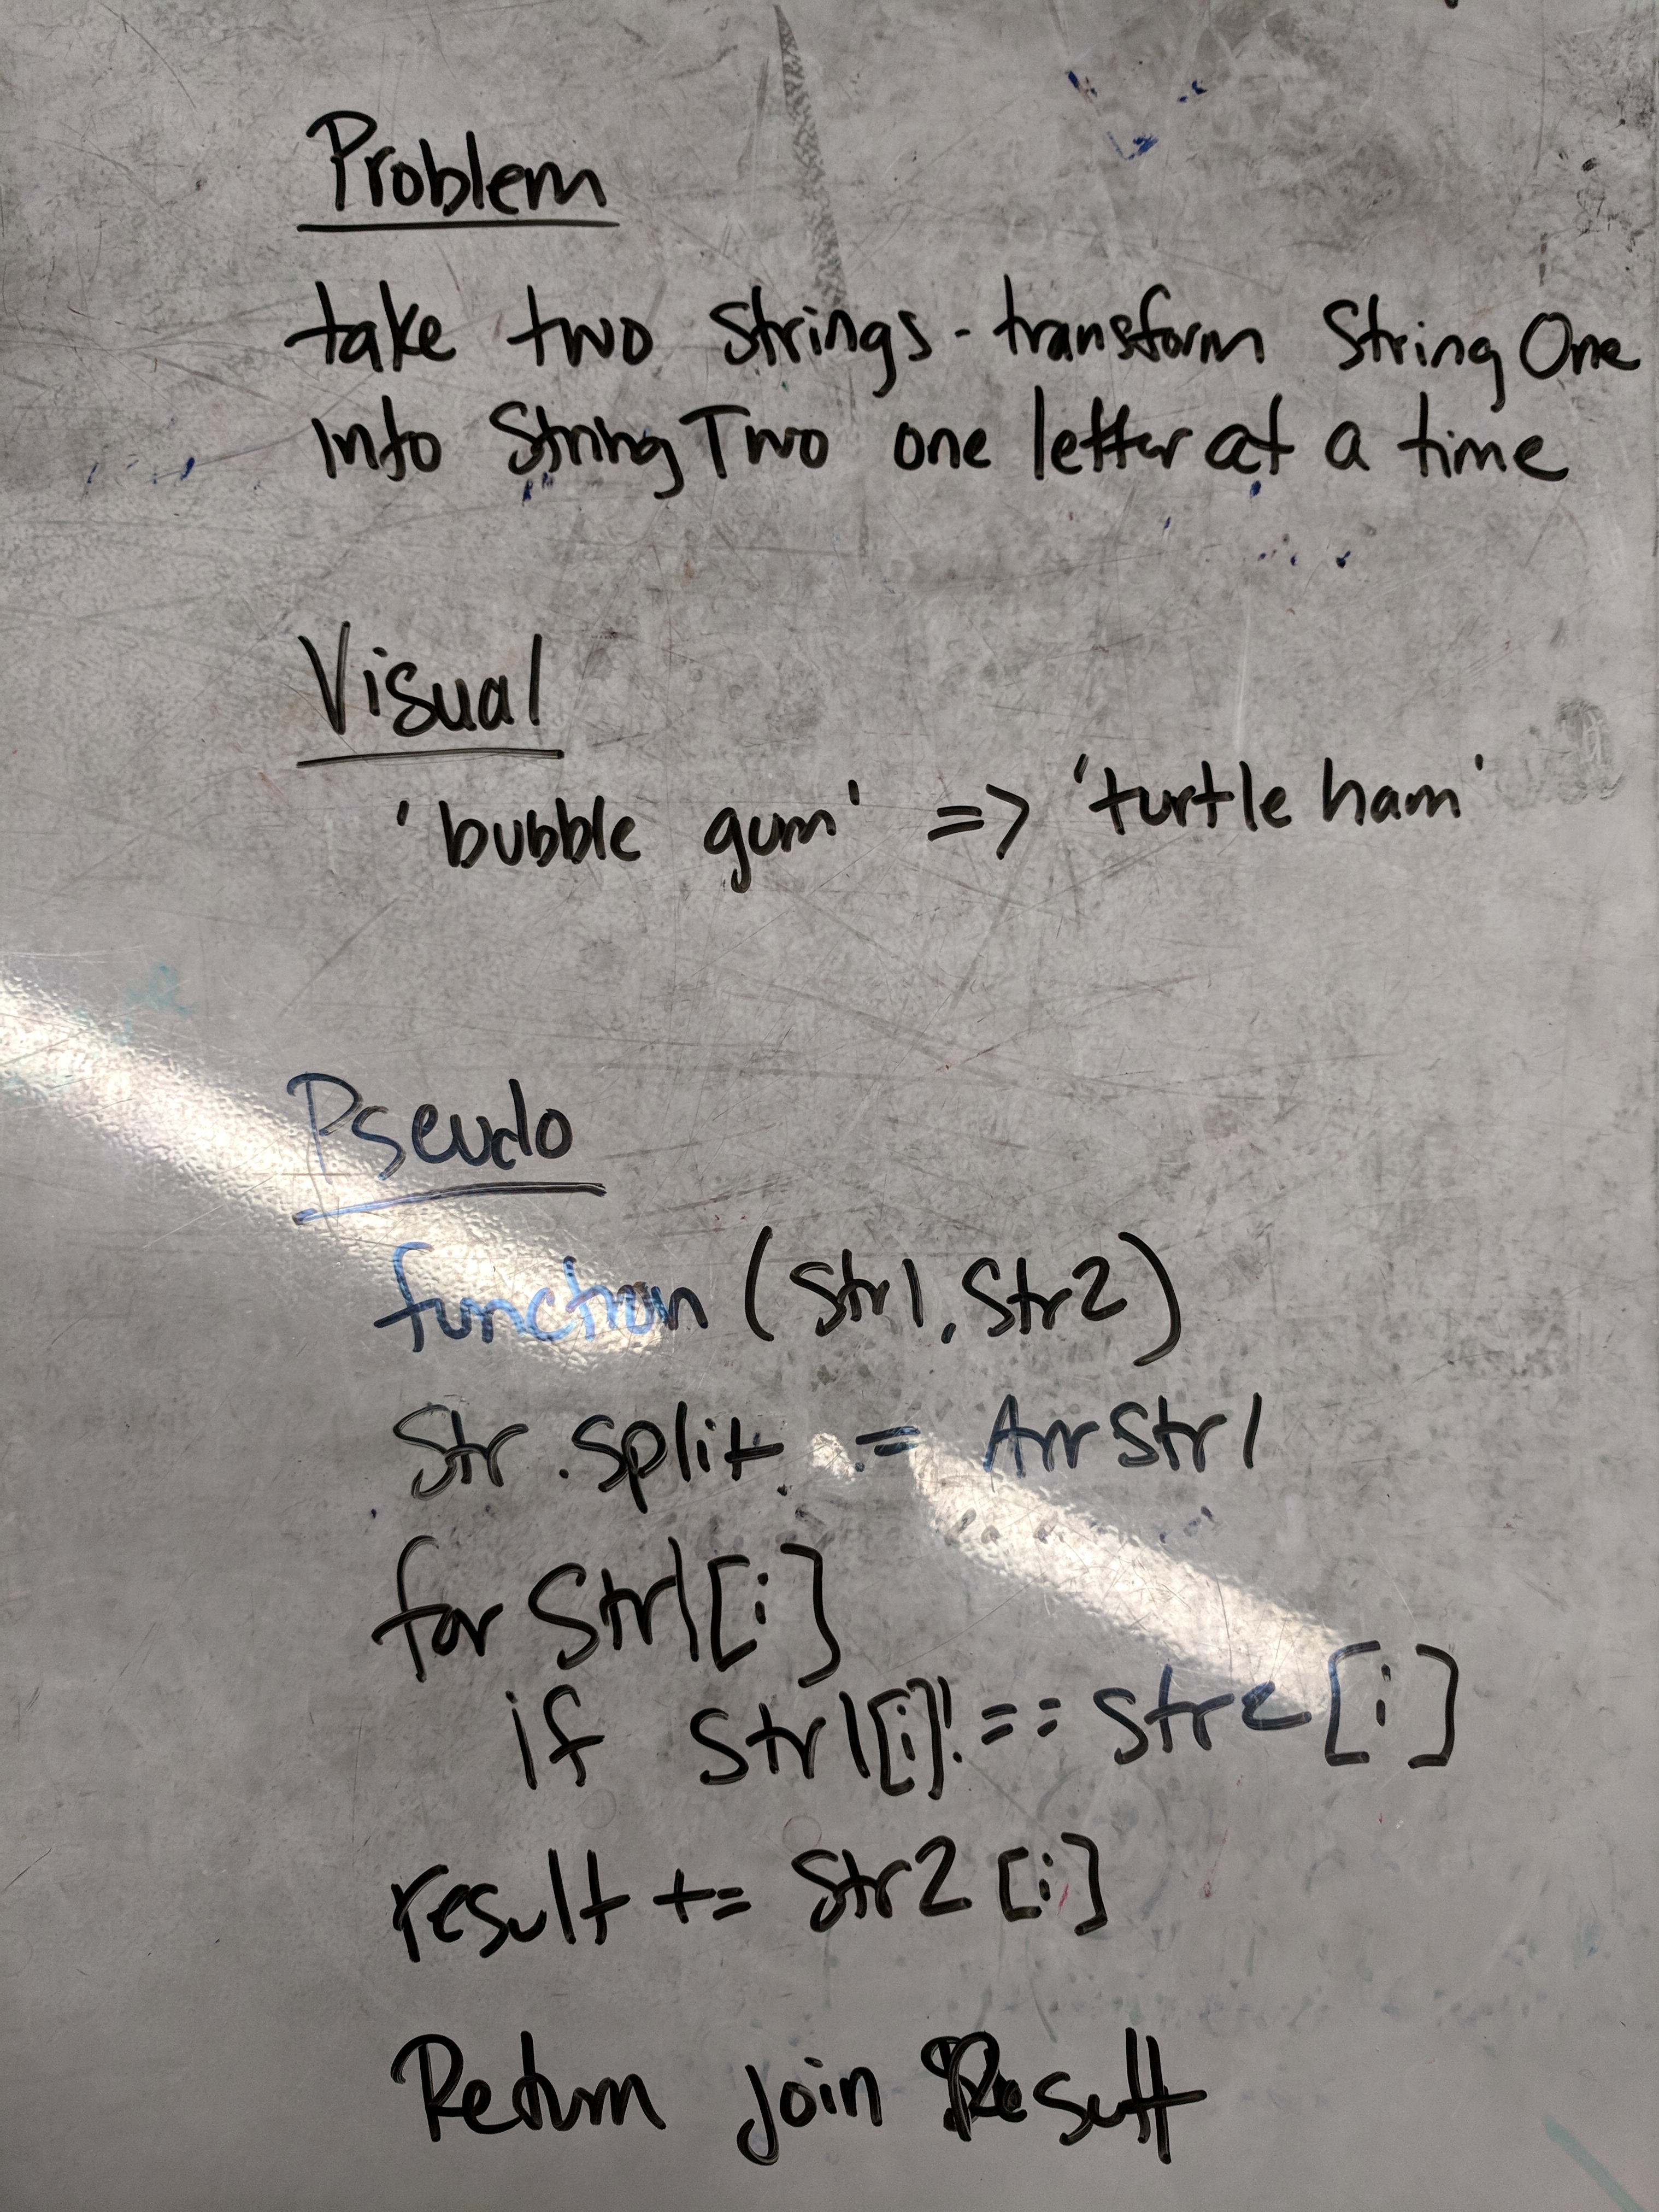 Problem
take two strings - transform String One
into String Two one letter at a time
Visual
'bubble gum' => 'turtle ham'
Pseudo
function (str1, str2)
Str.split = Arr Str1
for Str1[i]
if str1[i] !== str2[i]
result += str2[i]
Return join Result